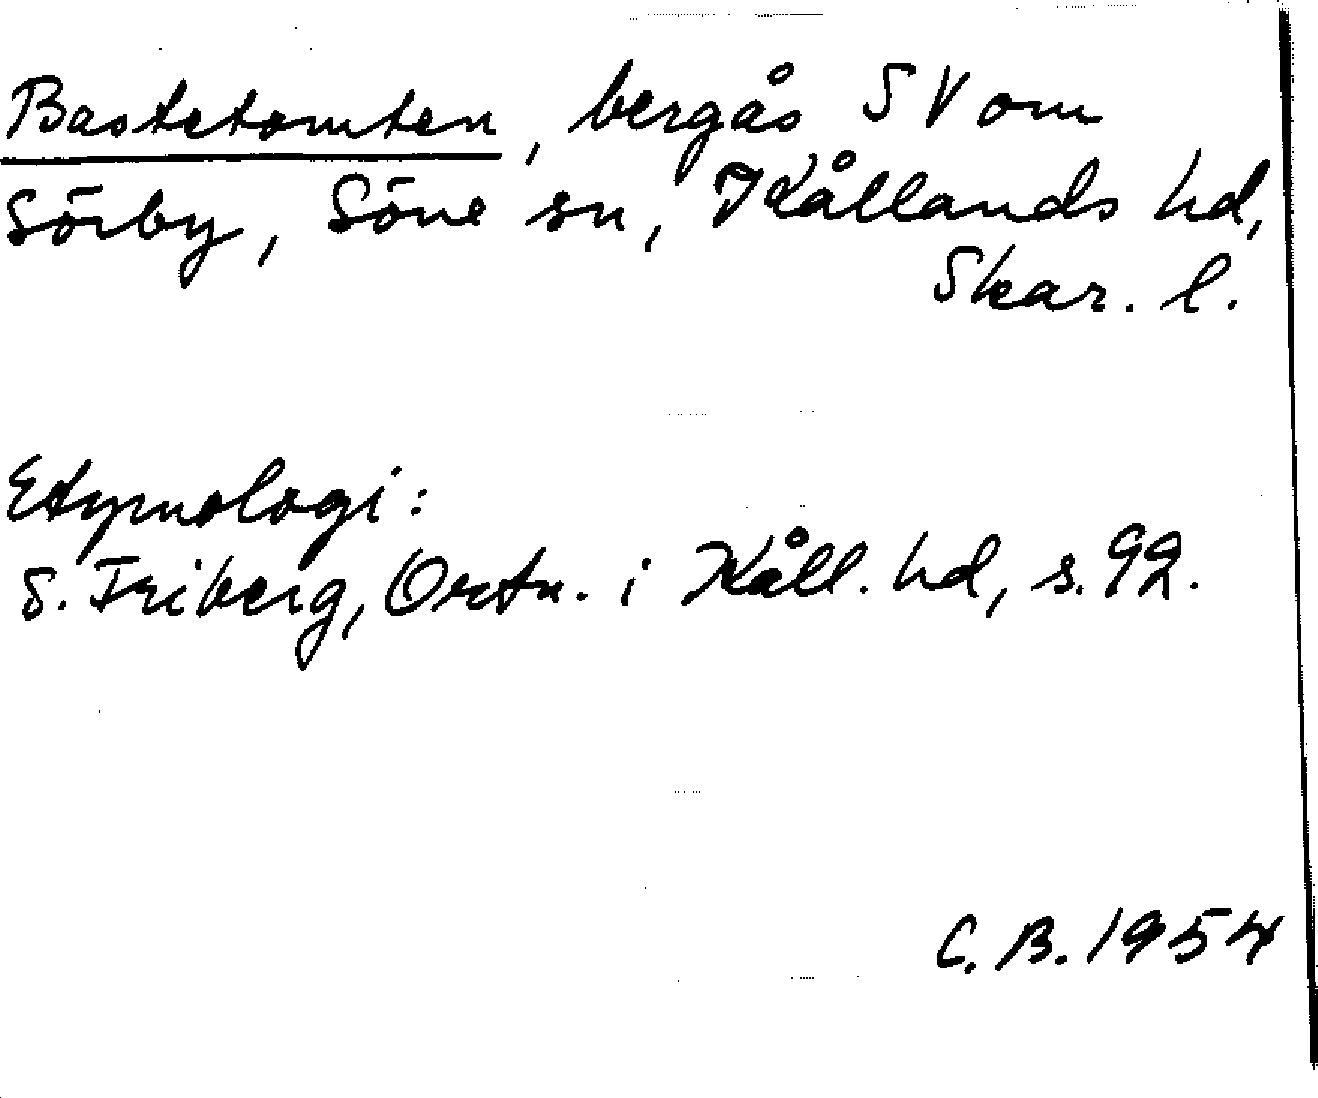 Bastetomten, bergås SV om
Sörby, Söne sn, Kållands hd,
Skar. l.
Etymologi:
S. Friberg, Ortn. i Kåll. hd, s. 92.
C. B. 1954